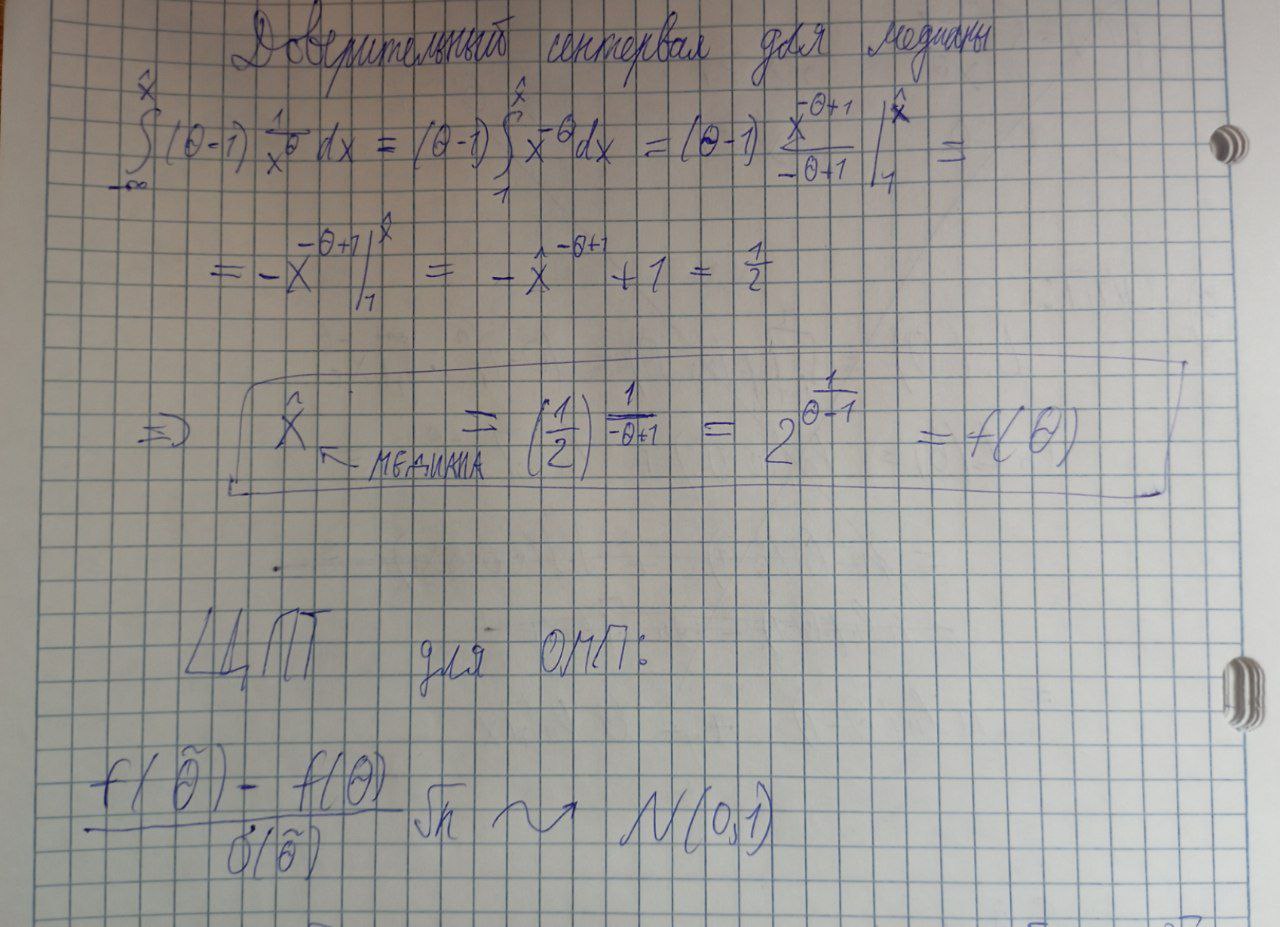 Доверительный интервал для медианы
∫_{-∞}^{x̂} (θ-1) 1/x^θ dx = (θ-1) ∫_1^{x̂} x^{-θ} dx = (θ-1) x^{-θ+1}/(-θ+1) |_1^{x̂} =
= -x^{-θ+1} |_1^{x̂} = -x̂^{-θ+1} + 1 = 1/2
⇒ x̂ ← МЕДИАНА = (1/2)^{1/(-θ+1)} = 2^{1/(θ-1)} = f(θ)
ЦПТ для ОМП:
(f(θ̃) - f(θ))/σ(θ̃) √n ⇝ N(0,1)